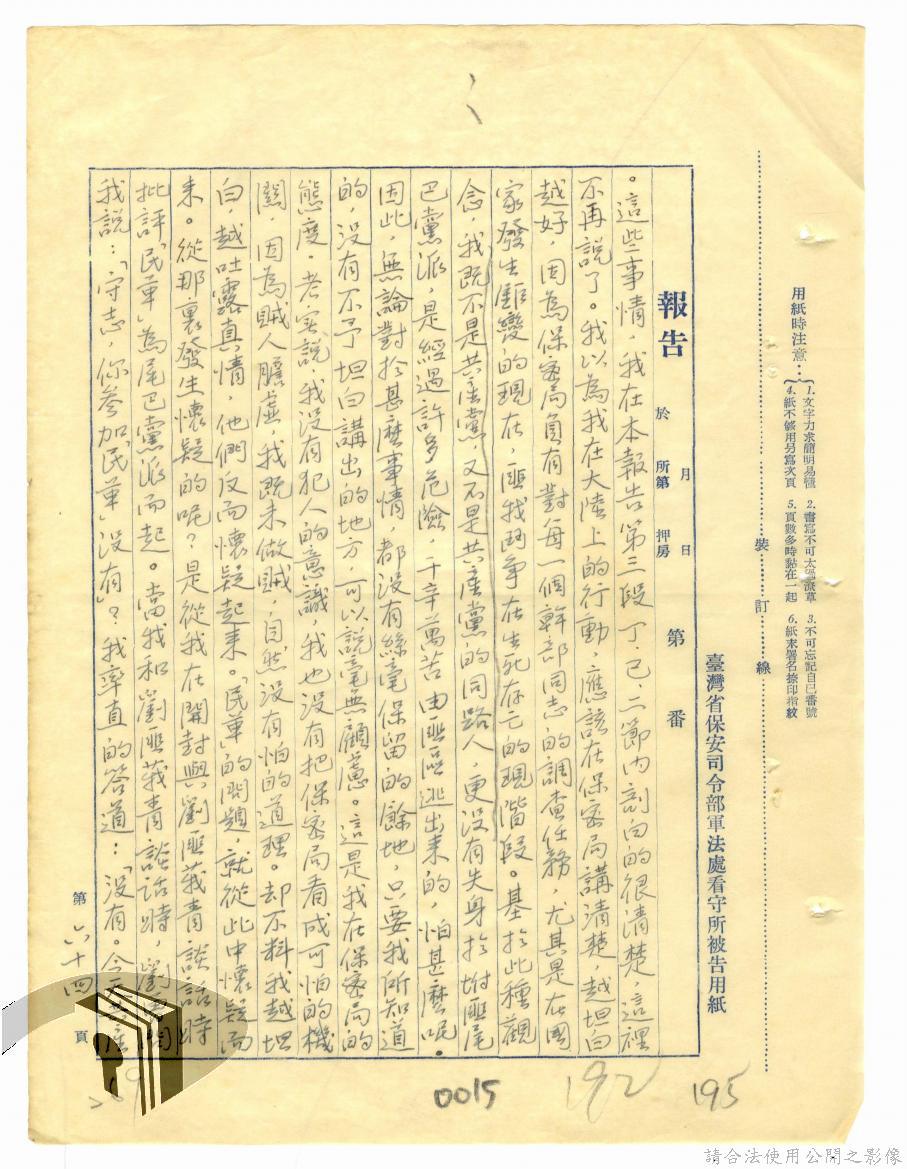 用紙時注意：
1. 文字力求簡明易懂
2. 書寫不可太過潦草
3. 不可忘記自己番號
4. 紙不够用另寫次頁
5. 頁數多時黏在一起
6. 紙末署名捺印指紋
裝訂線
臺灣省保安司令部軍法處看守所被告用紙
報告 於 月 日 所第 押房 第 番
。這些事情，我在本報告第三段丁、己二節內剖白的很清楚，這裡
不再說了。我以為我在大陸上的行動，應該在保密局講清楚，越坦白
越好，因為保密局負有對每一個幹部同志的調查任務，尤其是在國
家發生鉅變的現在，匪我鬥爭在生死存亡的現階段。基於此種觀
念，我既不是共產黨，又不是共產黨的同路人，更沒有失身於附匪尾
巴黨派，是經過許多危險，千辛萬苦由匪區逃出來的，怕甚麼呢。
因此，無論對於甚麼事情，都沒有絲毫保留的餘地，只要我所知道
的，沒有不予坦白講出的地方，可以說毫無顧慮。這是我在保密局的
態度。老實說，我沒有犯人的意識，我也沒有把保密局看成可怕的機
關，因為賊人膽虛，我既未做賊，自然沒有怕的道理。却不料我越坦
白，越吐露真情，他們反而懷疑起來。「民革」的問題，就從此中懷疑而
來。從那裏發生懷疑的呢？是從我在開封與劉匪莪青談話時
批評「民革」為尾巴黨派而起。當我和劉匪莪青談話時，劉匪
我說：「守志，你參加「民革」沒有」？我率直的答道：「沒有。今天共產
第 六十四 頁
0015
192
195
請合法使用公開之影像